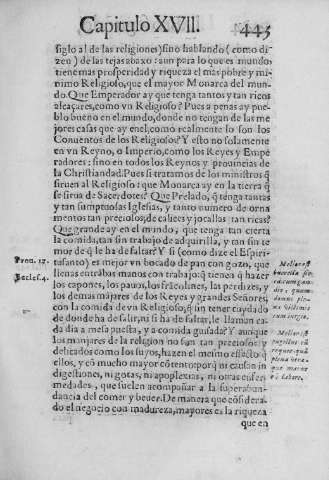 Capitulo XVII. 445
siglo al de las religiones) sino hablando (como di
zen) de las tejas abaxo: aun para lo que es mundo
tiene mas prosperidad y riqueza el mas pobre y mi-
nimo Religioso, que el mayor Monarca del mun-
do. Que Emperador ay que tenga tantos y tan ricos
alcaçares, como vn Religioso? Pues a penas ay pue-
blo bueno en el mundo, donde no tengan de las me
jores casas que ay en el, como realmente lo son los
Conuentos de los Religiosos? Y esto no solamente
en vn Reyno, o Imperio, como los Reyes y Empe
radores: sino en todos los Reynos y prouincias de
la Christiandad. Pues si tratamos de los ministros q̃
siruen al Religioso: que Monarca ay en la tierra q̃
se sirua de Sacerdotes? Que Prelado, q̃ tenga tantas
y tan sumptuosas Iglesias, y tanto numero de orna
mentos tan preciosos, de calices y jocallas tan ricas?
Que grande ay en el mundo, que tenga tan cierta
la comida, tan sin trabajo de adquirilla, y tan sin te
mor de q̃ le ha de faltar? Y si (como dize el Espiri-
tusanto) es mejor vn bocado de pan con gozo, que
llenas entrãbas manos con trabajo; q̃ tienen q̃ hazer
los capones, los pauos, los frãcolines, las perdizes, y
los demas májares de los Reyes y grandes Señores,
con la comida de vn Religioso, q̃ sin tener cuydado
de donde ha de venir, ni si ha de faltar, le llaman ca-
da dia a mesa puesta, y a comida guisada? Y aunque
los manjares de la religion no son tan preciosos y
delicados como los suyos, hazen el mesmo effecto q̃
ellos, y cõ mucho mayor cõtento: porq̃ ni causan in
digestiones, ni gotas, ni apoplexias, ni otras enfer-
medades, que suelen acompañar a la superabun-
dancia del comer y beuer. De manera que cõsidera-
do el negocio con madureza, mayor es la riqueza
que en
Prou. 17.
Eccles. 4.
Melior est
buccella sic
ca cum gau-
dio, quam
domus ple-
na victimis
cum iurgio.
Melior est
pugillus cũ
requie quã
plena vtra-
que manus
cũ labore.